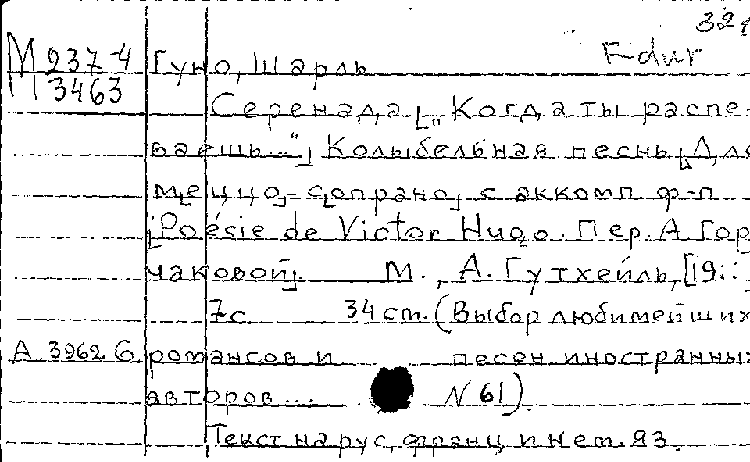 32
F-dur
М 237-4 Гуно, Шарль
3463
Серенада „Когда ты распе-
ваешь..." Колыбельная песнь Для
меццо-сопрано с аккомп ф-п
Poésie de Victor Hugo. Пер. А Гор
чаковой. М., А. Гутхейль, [19..
7с. 34 ст. (Выбор любимейших
А 3962 б романсов и песен иностранных
авторов... N 61).
Текст на рус, франц и нем. яз.